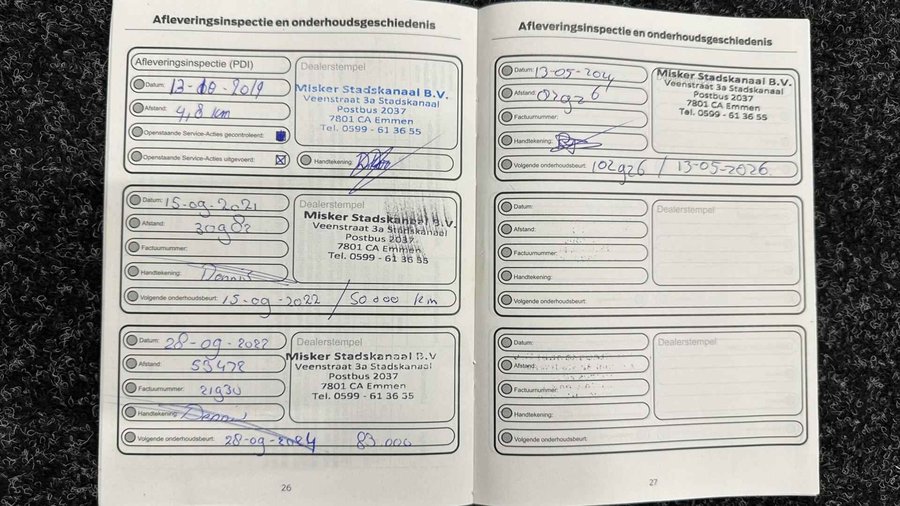 Afleveringsinspectie en onderhoudsgeschiedenis
Afleveringsinspectie (PDI)
Datum: 13-08-2019
Afstand: 4,8 km
Openstaande Service-Acties gecontroleerd:
Openstaande Service-Acties uitgevoerd:
Dealerstempel
Misker Stadskanaal B.V.
Veenstraat 3a Stadskanaal
Postbus 2037
7801 CA Emmen
Tel. 0599 - 61 36 55
Handtekening:
Datum: 15-09-2021
Afstand: 30902
Factuurnummer:
Handtekening: Dennis
Dealerstempel
Misker Stadskanaal B.V.
Veenstraat 3a Stadskanaal
Postbus 2037
7801 CA Emmen
Tel. 0599 - 61 36 55
Volgende onderhoudsbeurt: 15-09-2022 / 50000 km
Datum: 28-09-2022
Afstand: 53478
Factuurnummer: 21930
Handtekening: Dennis
Dealerstempel
Misker Stadskanaal B.V
Veenstraat 3a Stadskanaal
Postbus 2037
7801 CA Emmen
Tel. 0599 - 61 36 55
Volgende onderhoudsbeurt: 28-09-2024 83.000
26
Afleveringsinspectie en onderhoudsgeschiedenis
Datum: 13-05-204
Afstand:
Factuurnummer:
Handtekening:
Misker Stadskanaal B.V.
Veenstraat 3a Stadskanaal
Postbus 2037
7801 CA Emmen
Tel. 0599 - 61 36 55
Volgende onderhoudsbeurt: 102926 / 13-05-2026
Datum:
Afstand:
Factuurnummer:
Handtekening:
Dealerstempel
Volgende onderhoudsbeurt:
Datum:
Afstand:
Factuurnummer:
Handtekening:
Dealerstempel
Volgende onderhoudsbeurt:
27